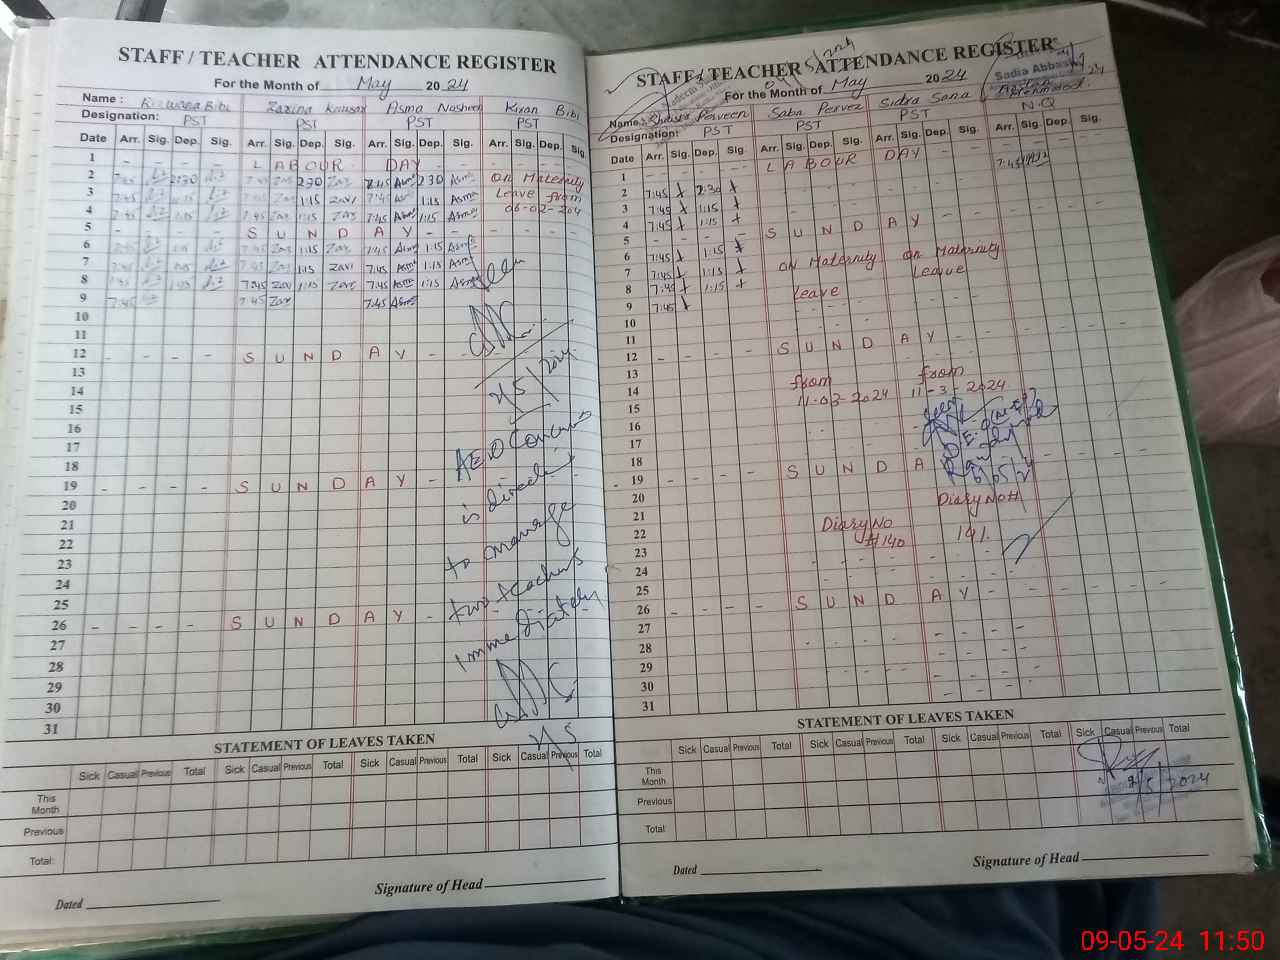 STAFF / TEACHER ATTENDANCE REGISTER
For the Month of May 2024
Name: Rizwana Bibi Zarina Kausar Asma Nasheen Kiran Bibi
Designation: PST PST PST PST
Date Arr. Sig. Dep. Sig. Arr. Sig. Dep. Sig. Arr. Sig. Dep. Sig. Arr. Sig. Dep. Sig.
1 - - - - L A B O U R DAY - -
2 7:45 2:30 7:45 Zar 2:30 Zar 7:45 Asma 2:30 Asma On Maternity
3 7:45 1:15 7:45 1:15 Zari 7:45 1:15 Asma Leave from
4 7:45 1:15 7:45 Zar 1:15 Zar 7:45 Asma 1:15 Asma 06-02-204
5 - - - - S U N D A Y - - - - - -
6 7:45 1:15 7:45 Zar 1:15 Zar 7:45 Asma 1:15 Asma
7 7:45 1:15 7:45 Zar 1:15 Zari 7:45 Asma 1:15 Asma
8 7:45 1:15 7:45 Zari 1:15 Zar 7:45 Asma 1:15 Asma
9 7:45 7:45 Zar 7:45 Asma
10
11
12 - - - - S U N D A Y - -
13
14
15
16
17
18
19 - - - - S U N D A Y -
20
21
22
23
24
25
26 - - - - S U N D A Y -
27
28
29
30
31
AEO Concern
is directed
to manage
two teachers
immediately
STATEMENT OF LEAVES TAKEN
Sick Casual Previous Total Sick Casual Previous Total Sick Casual Previous Total Sick Casual Previous Total
This Month
Previous
Total:
Dated
Signature of Head
STAFF / TEACHER ATTENDANCE REGISTER
For the Month of May 2024
Sadia Abbas
Name: Perveen Saba Pervez Sidra Sana
N.Q
Designation: PST PST PST
Date Arr. Sig. Dep. Sig. Arr. Sig. Dep. Sig. Arr. Sig. Dep. Sig. Arr. Sig. Dep. Sig.
1 - - - - L A B O U R DAY - - 7:45
2 7:45 2:30
3 7:45 1:15
4 7:45 1:15
5 - - - - S U N D A Y
6 7:45 1:15 On Maternity On Maternity
7 7:45 1:15 Leave
8 7:45 1:15 Leave
9 7:45
10
11
12 - - - - S U N D A Y - - - - - -
13 from from
14 11-03-2024 11-3-2024
15
16
17
18
19 - - - - S U N D A
20 Diary No #
21 Diary No 141.
22 #140
23
24
25
26 - - - - S U N D A Y - - - - - -
27
28
29
30
31
STATEMENT OF LEAVES TAKEN
Sick Casual Previous Total Sick Casual Previous Total Sick Casual Previous Total Sick Casual Previous Total
This Month
Previous
Total
9/5/2024
Dated
Signature of Head
09-05-24 11:50